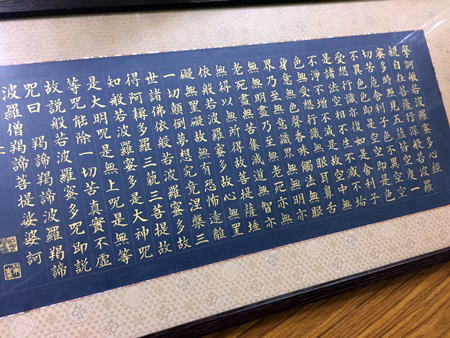 般若波羅蜜多心經
觀自在菩薩行深般若波羅
蜜多時照見五蘊皆空度一
切苦厄舍利子色不異空空
不異色色即是空空即是色
受想行識亦復如是舍利子
是諸法空相不生不滅不垢
不淨不增不減是故空中無
色無受想行識無眼耳鼻舌
身意無色聲香味觸法無眼
界乃至無意識界無無明亦
無無明盡乃至無老死亦無
老死盡無苦集滅道無智亦
無得以無所得故菩提薩埵
依般若波羅蜜多故心無罣
礙無罣礙故無有恐怖遠離
一切顛倒夢想究竟涅槃三
世諸佛依般若波羅蜜多故
得阿耨多羅三藐三菩提故
知般若波羅蜜多是大神咒
是大明咒是無上咒是無等
等咒能除一切苦真實不虛
故說般若波羅蜜多咒即說
咒曰 羯諦羯諦波羅羯諦
波羅僧羯諦菩提娑婆訶